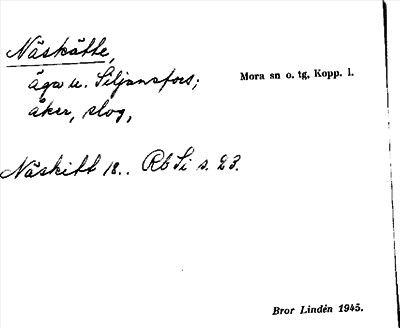 Näskätte,
äga u. Siljansfors;
Mora sn o. tg, Kopp. l.
åker, slog,
Näskitt 18.. Rb Si s. 23.
Bror Lindén 1945.